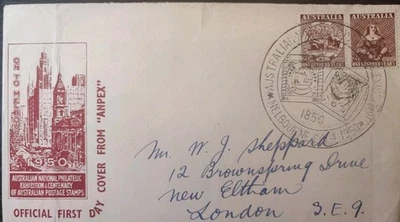 OFFICIAL FIRST DAY COVER FROM "ANPEX"
1950
AUSTRALIAN NATIONAL PHILATELIC
EXHIBITION & CENTENARY
OF AUSTRALIAN POSTAGE STAMPS
AUSTRALIA
AUSTRALIA
1850
Mr. W. J. Sheppard
12 Brownspring Drive
New Eltham
London S.E.9.